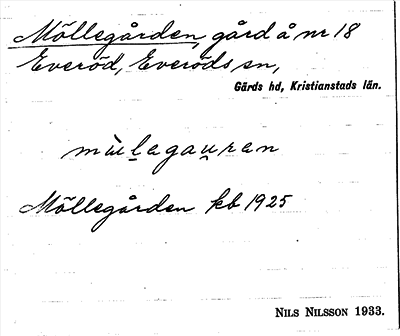 Möllegården, gård å nr 18
Everöd, Everöds sn,
Gärds hd, Kristianstads län.
Möllegården kb 1925
NILS NILSSON 1933.